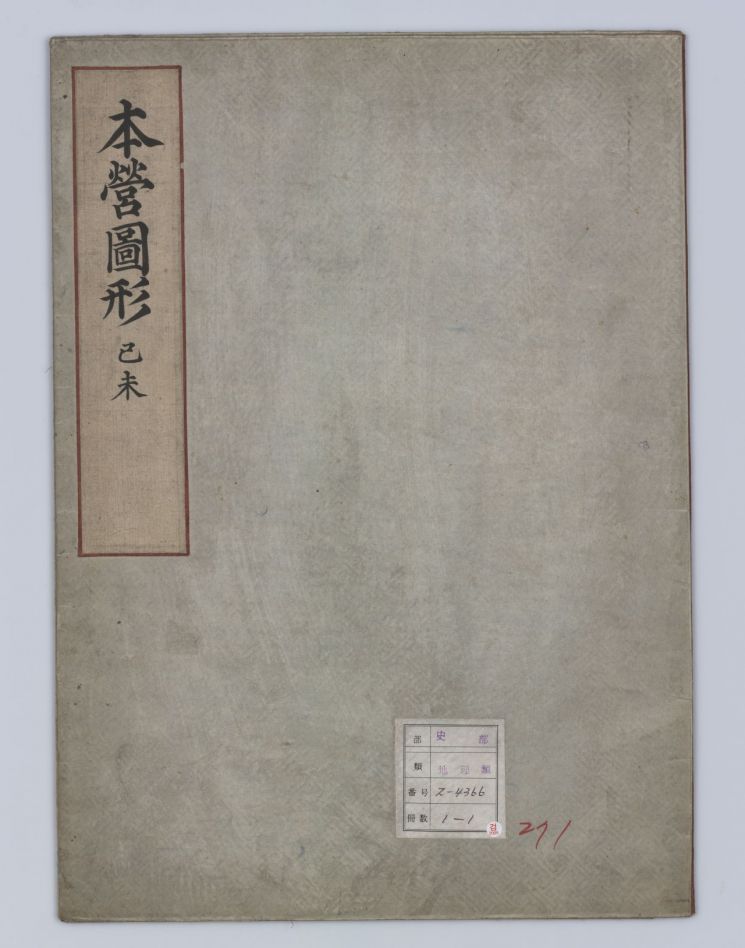 本營圖形 己未
部 史 部
類 地理類
番号 2-4366
冊数 1-1
271